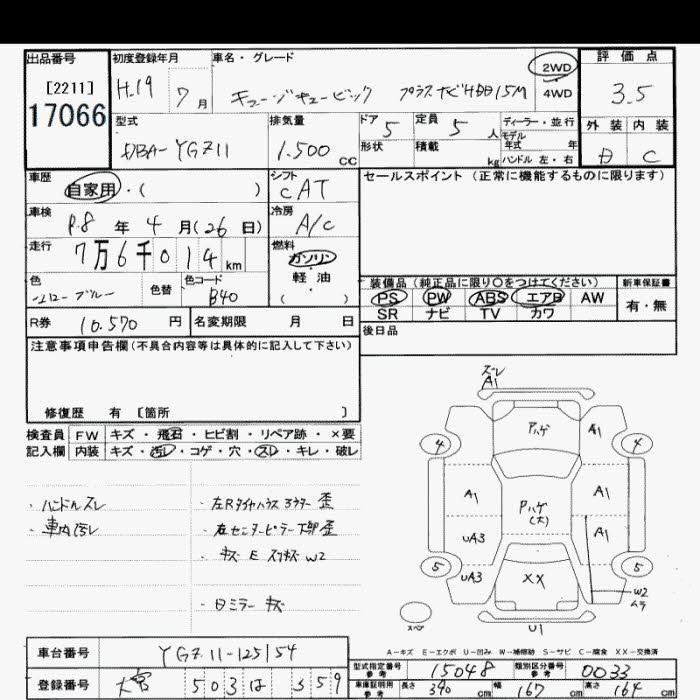 出品番号 初度登録年月 車名・グレード 評価点
[2211]
17066
H.19 7月 キューブキュービック プラスナビHDD 15M 2WD 4WD 3.5
型式 排気量 ドア 5 定員 5人 ディーラー・並行 外装 内装
モデル年式 年
DBA-YGZ11 1.500cc 形状 積載 kg ハンドル 左・右 D C
車歴 自家用・( ) シフト CAT セールスポイント(正常に機能するものに限ります)
車検 R.8年4月(26日) 冷房 A/C
走行 7万6千014km 燃料 ガソリン・軽油・( )
色 ブルー 色替 色コード B40
装備品(純正品に限り○をつけてください) 新車保証書
PS PW ABS エアB AW 有・無
SR ナビ TV カワ
R券 10.570円 名変期限 月 日 後日品
注意事項申告欄(不具合内容等は具体的に記入して下さい)
修復歴 有 〔箇所 〕
検査員 FW キズ・飛石・ヒビ割・リペア跡・×要
記入欄 内装 キズ・汚レ・コゲ・穴・スレ・キレ・破レ
・ハンドルスレ
・車内汚レ
・左Rタイヤハウス 歪
・右センターピラー下部 歪
・キズ E スリキズ W2
・日ミラー キズ
スレ
A1
Pハゲ A1
4 4
A1 Pハゲ(大) A1
UA3 A1
5 5
UA3 XX W2
ムラ
スペア
U1
A-キズ E-エクボ U-凹み W-補修跡 S-サビ C-腐食 XX-交換済
車台番号 YGZ11-125154
型式指定番号 参考 15048 類別区分番号 参考 0033
登録番号 大宮 503 は 359
車庫証明用 参考 長さ 390cm 幅 167cm 高さ 164cm